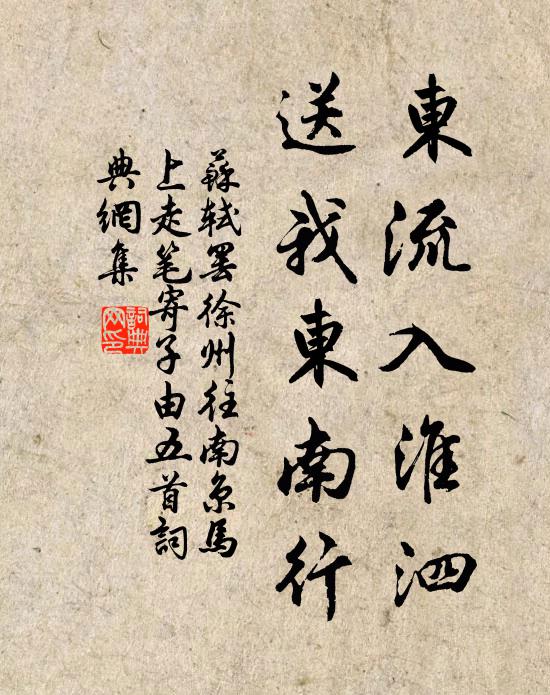 東流入淮泗
送我東南行
蘇軾罢徐州往南京馬
上走笔寄子由五首詞
典網集
詞典网印